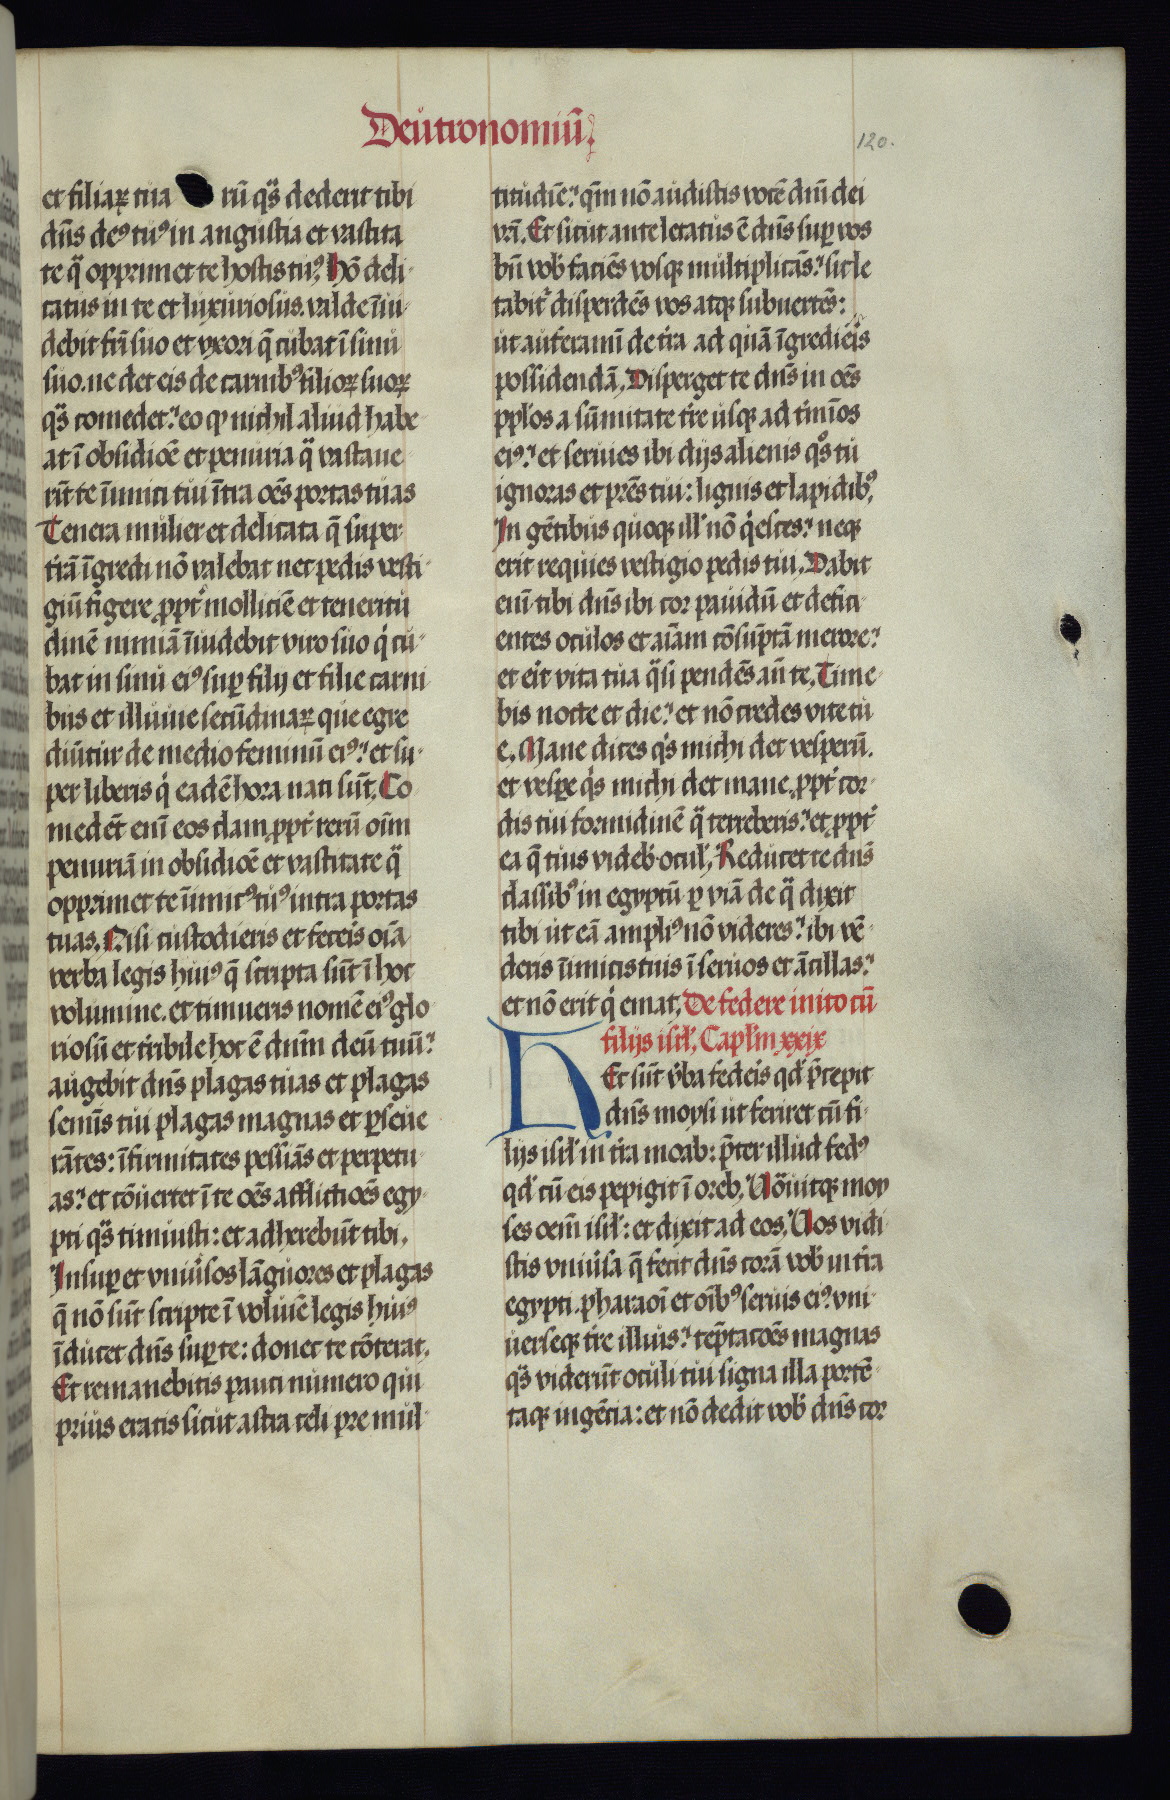 Deutronomiū
120.
et filiaꝝ tua rū qͣs dederit tibi
dn̄s deꝰ tuꝰ in angustia et vastita
te qͣ opprimet te hostis tuꝰ. Hō deli
catus in te et luxuriosus. valde īui
debit fr̄i suo et vxori q̄ cubat ī sinu
suo. ne det eis de carnibꝰ filioꝝ suoꝝ
qͣs comedet: eo qͥ nichil aliud habe
at ī obsidiōe et penuria qͣ vastaue
rūt te īimici tui īt̄ra oēs portas tuas
Tenera mulier et delicata q̄ super
t̄rā īgredi nō valebat nec pedis vesti
giū figere ꝓpt̄ molliciē et teneritu
dinē nimiā īuidebit viro suo qͥ cu
bat in sinu eiꝰ suꝑ filij et filie carni
bus et illuuie secūdinaꝝ que egre
diūtur de medio feminū eiꝰ: et su
per liberis qͥ eadē hora nati sūt. Co
medēt enī eos clam ꝓpt̄ rerū oīm
penuriā in obsidiōe et vastitate qͣ
opprimet te īimicꝰ tuꝰ intra portas
tuas. Nisi custodieris et feceīs oīa
verba legis huiꝰ q̄ scripta sūt ī hoc
volumine. et timueris nomē eiꝰ glo
riosū et t̄ribile hoc ē dn̄m deū tuū:
augebit dn̄s plagas tuas et plagas
semīs tui plagas magnas et ꝑseue
rātes: īfirmitates pessīas et perpetu
as: et cōuertet ī te oēs afflictiōes egy
pti qͣs timuisti: et adherebūt tibi.
Insuꝑ et vniūsos lāguores et plagas
q̄ nō sūt scripte ī voluīe legis huiꝰ
īducet dn̄s suꝑ te: donec te cōterat.
Et remanebitis pauci numero qui
prius eratis sicut astra celi pre mul
titudīe: qm̄ nō audistis vocē dn̄i dei
vr̄i. Et sicut ante letatus ē dn̄s suꝑ vos
bn̄ vob̄ faciēs vosqꝫ multiplicās: sic le
tabit̄ disperdēs vos atqꝫ subuertēs:
ut auferamī de t̄ra ad quā īgredieīs
possidendā. Disperget te dn̄s in oēs
ppl̄os a sūmitate t̄re usqꝫ ad t̄mīos
eiꝰ: et seruies ibi dijs alienis qͦs tu
ignoras et pr̄es tui: lignis et lapidibꝰ.
In gētibus quoqꝫ ill̄ nō qͥesces: neqꝫ
erit requies vestigio pedis tui. Dabit
enī tibi dn̄s ibi cor pauidū et defici
entes oculos et aīam cōsūptā merore:
et eīt vita tua qͣsi pendēs an̄ te. Time
bis nocte et die: et nō credes vite tu
e. Mane dices qͥs michi det vesperū.
et vesꝑe qͥs michi det mane. ꝓpt̄ cor
dis tui formidinē qͣ terreberis: et ꝓpt̄
ea q̄ tuis videb̄ ocul̄. Reducet te dn̄s
classibꝰ in egyptū ꝑ viā de qͣ dixit
tibi ut eā ampliꝰ nō videres: ibi vē
deris īimicis tuis ī seruos et ācillas:
et nō erit qͥ emat. De federe inito cū
filijs isrl̄. Capl̄m xxix
Hec sūt v̄ba fedeīs qd̄ p̄cepit
dn̄s moysi ut feriret cū fi
lijs isrl̄ in t̄ra moab: p̄ter illud fedꝰ
qd̄ cū eis pepigit ī oreb. Uōuitqꝫ moy
ses oēm isrl̄: et dixit ad eos. Uos vidi
stis vniūsa q̄ fecit dn̄s corā vob̄ in t̄ra
egypti. pharaōi et oībꝰ seruis eiꝰ. vni
uerseqꝫ t̄re illius: tēptacōes magnas
qͣs viderūt oculi tui signa illa portē
taqꝫ ingētia: et nō dedit vob̄ dn̄s cor